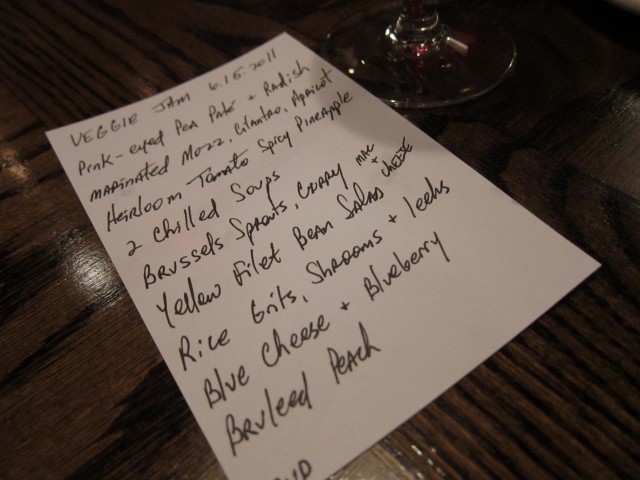 VEGGIE JAM 6.15.2011
Pink-eyed Pea Pate + Radish
marinated Mozz, Cilantro, Apricot
Heirloom Tomato Spicy Pineapple
2 Chilled Soups
Brussels Sprouts, Curry mac + cheese
Yellow Filet Bean Salad
Rice Grits, Shrooms + leeks
Blue Cheese + Blueberry
Bruleed Peach